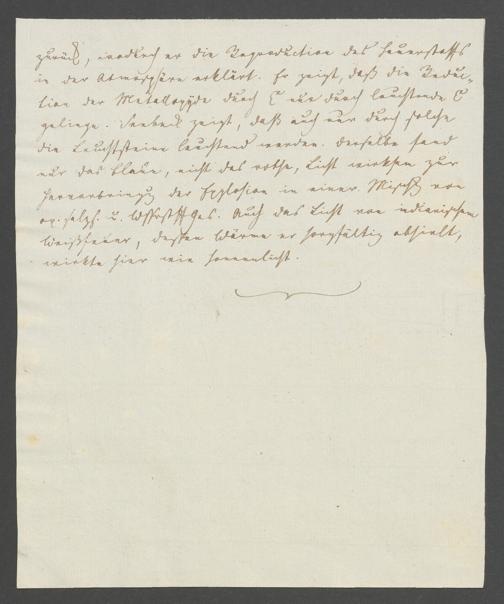 zurück, wodurch er die Reproduction des Sauerstoffs
in der Atmosphäre erklärt. Er zeigt, daß die Reduc-
tion der Metalloxyde durch nur durch leuchtende
gelinge. Seebeck zeigt, daß auch nur durch solche
die Leuchtsteine leuchtend werden. Derselbe fand
nur das blaue, nicht das rothe, Licht wirksam zur
Hervorbringung der Explosion in einer Misch von
ox. salzs. u. Wasserstoffgas. Auch das Licht von indianischem
Weißfeuer, dessen Wärme er sorgfältig abhielt,
wirkte hier wie Sonnenlicht.